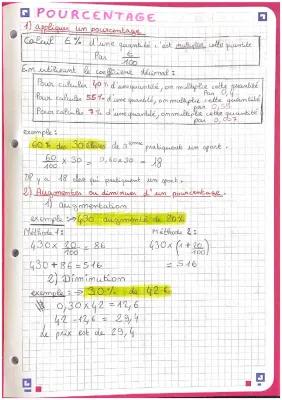 POURCENTAGE
1) appliquer un pourcentage
Calcul t% d'une quantité c'est multiplier cette quantité
Par t/100
En utilisant le coefficient décimal:
Pour calculer 40% d'une quantité, on multiplie cette quantité
Par 0,4
Pour calculer 55% d'une quantité, on multiplie cette quantité
par 0,55
Pour calculer 7% d'une quantité, on multiplie cette quantité
par 0,007
exemple:
60% des 30 élèves de pratiquent un sport.
60/100 x 30 = 0,60x30 = 18
Il y a 18 élèves qui pratiquent un sport.
2) Augmenter ou diminuer d'un pourcentage.
1) augmentation
exemple: → 430 augmenté de 20%
Méthode 1: Méthode 2:
430x 20/100 = 86 430x(1+20/100)
430+86=516 =516
2) Diminution
exemple: → 30% de 42€
0,30x42=12,6
42-12,6=29,4
Le prix est de 29,4